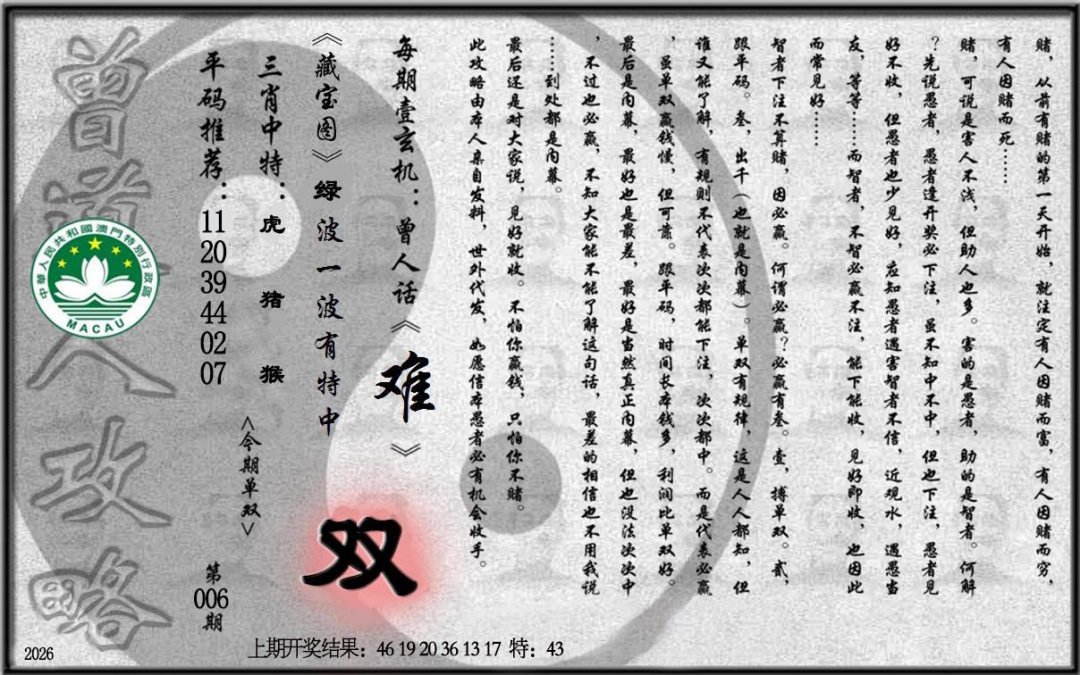 赌，从前有赌的第一天开始，就注定有人因赌而富，有人因赌而穷，
有人因赌而死……
赌，可说是害人不浅，但助人也多。害的是愚者，助的是智者。何解
？先说愚者，愚者逢开奖必下注，虽不知中不中，但也下注，愚者见
好不收，但愚者也少见好，应知愚者遇害智者不信，近观水，遇愚当
友，等等……而智者，不智必赢不注，能下能收，见好即收，也因此
而常见好……
智者下注不算赌，因必赢。何谓必赢？必赢有叁。壹，搏单双。贰，
跟平码。叁，出千（也就是内幕）。单双有规律，这是人人都知，但
谁又能了解，有规则不代表次次都能下注，次次都中。而是代表必赢
，虽单双赢钱慢，但可靠。跟平码，时间长本钱多，利润比单双好。
最后是内幕，最好也是最差，最好是当然真正内幕，但也没法次次中
，不过也必赢，不知大家能不能了解这句话，最差的相信也不用我说
……到处都是内幕。
最后还是对大家说，见好就收。不怕你赢钱，只怕你不赌。
此攻略由本人亲自发料，世外代发，如愿信本愚者必有机会收手。
每期壹玄机：曾人话《难》
《藏宝图》绿波一波有特中
双
三肖中特：虎 猪 猴
<今期单双>
平码推荐：11 20 39 44 02 07
第006期
曾道人攻略
中華人民共和國澳門特別行政區
MACAU
2026
上期开奖结果：46 19 20 36 13 17 特：43